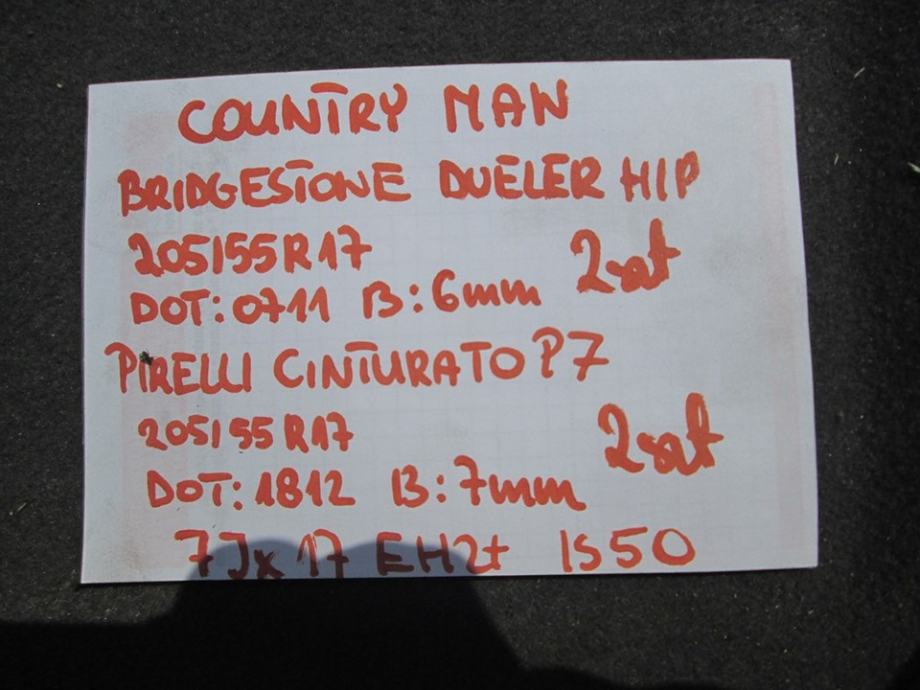 COUNTRY MAN
BRIDGESTONE DUELER H/P
205/55R17
2szt
DOT:0711 B:6mm
PIRELLI CINTURATO P7
205/55R17
2szt
DOT:1812 B:7mm
7Jx17 EH2+ IS50